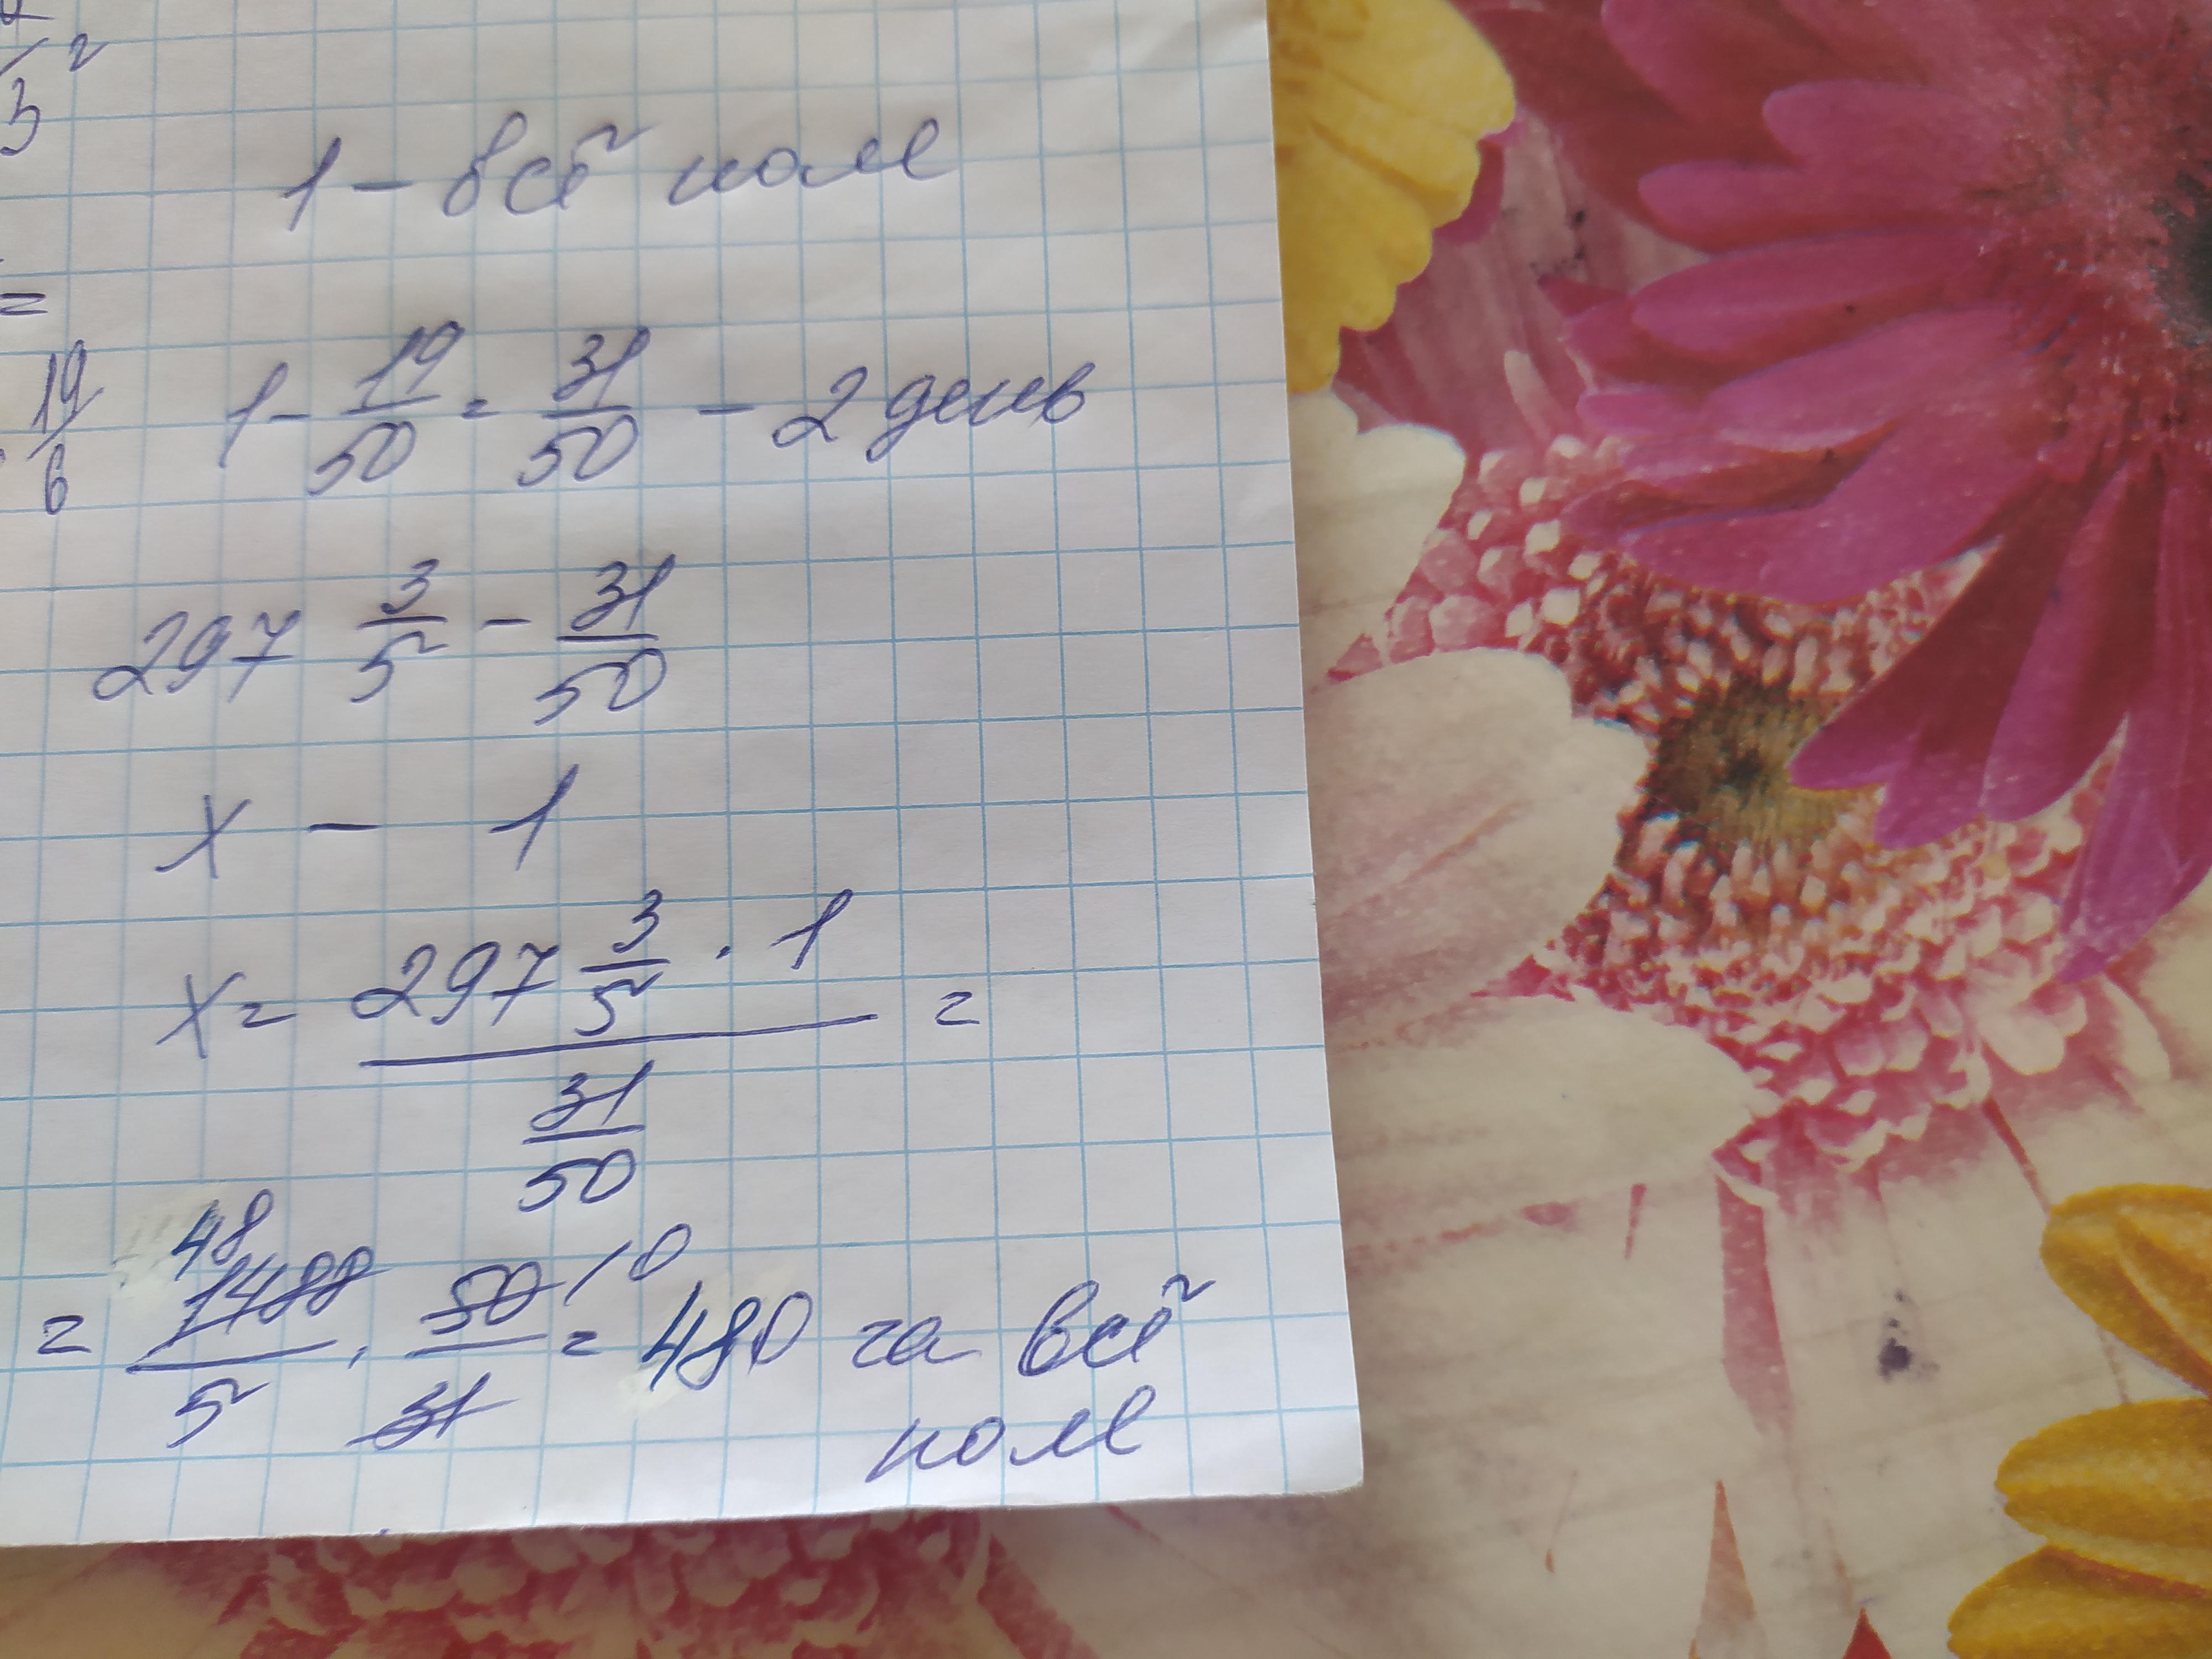 1 - всё поле
1 - 19/50 = 31/50 - 2 день
19/6
297 3/5 - 31/50
x - 1
x = 297 3/5 · 1 =
31/50
48 10
= 1488/5 · 50/31 = 480 га всё
поле